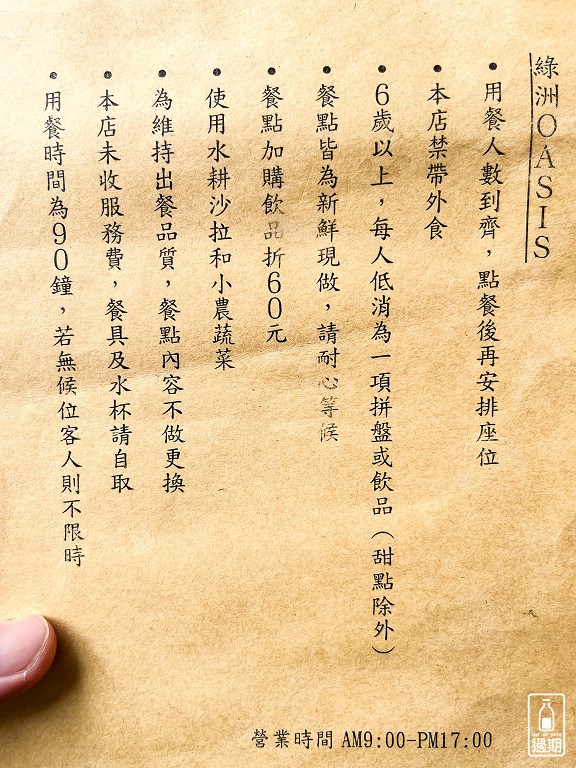 綠洲OASIS
• 用餐人數到齊，點餐後再安排座位
• 本店禁帶外食
• 6歲以上，每人低消為一項拼盤或飲品（甜點除外）
• 餐點皆為新鮮現做，請耐心等候
• 餐點加購飲品折60元
• 使用水耕沙拉和小農蔬菜
• 為維持出餐品質，餐點內容不做更換
• 本店未收服務費，餐具及水杯請自取
• 用餐時間為90鐘，若無候位客人則不限時
營業時間 AM9:00-PM17:00
OUT OF DATE
過期